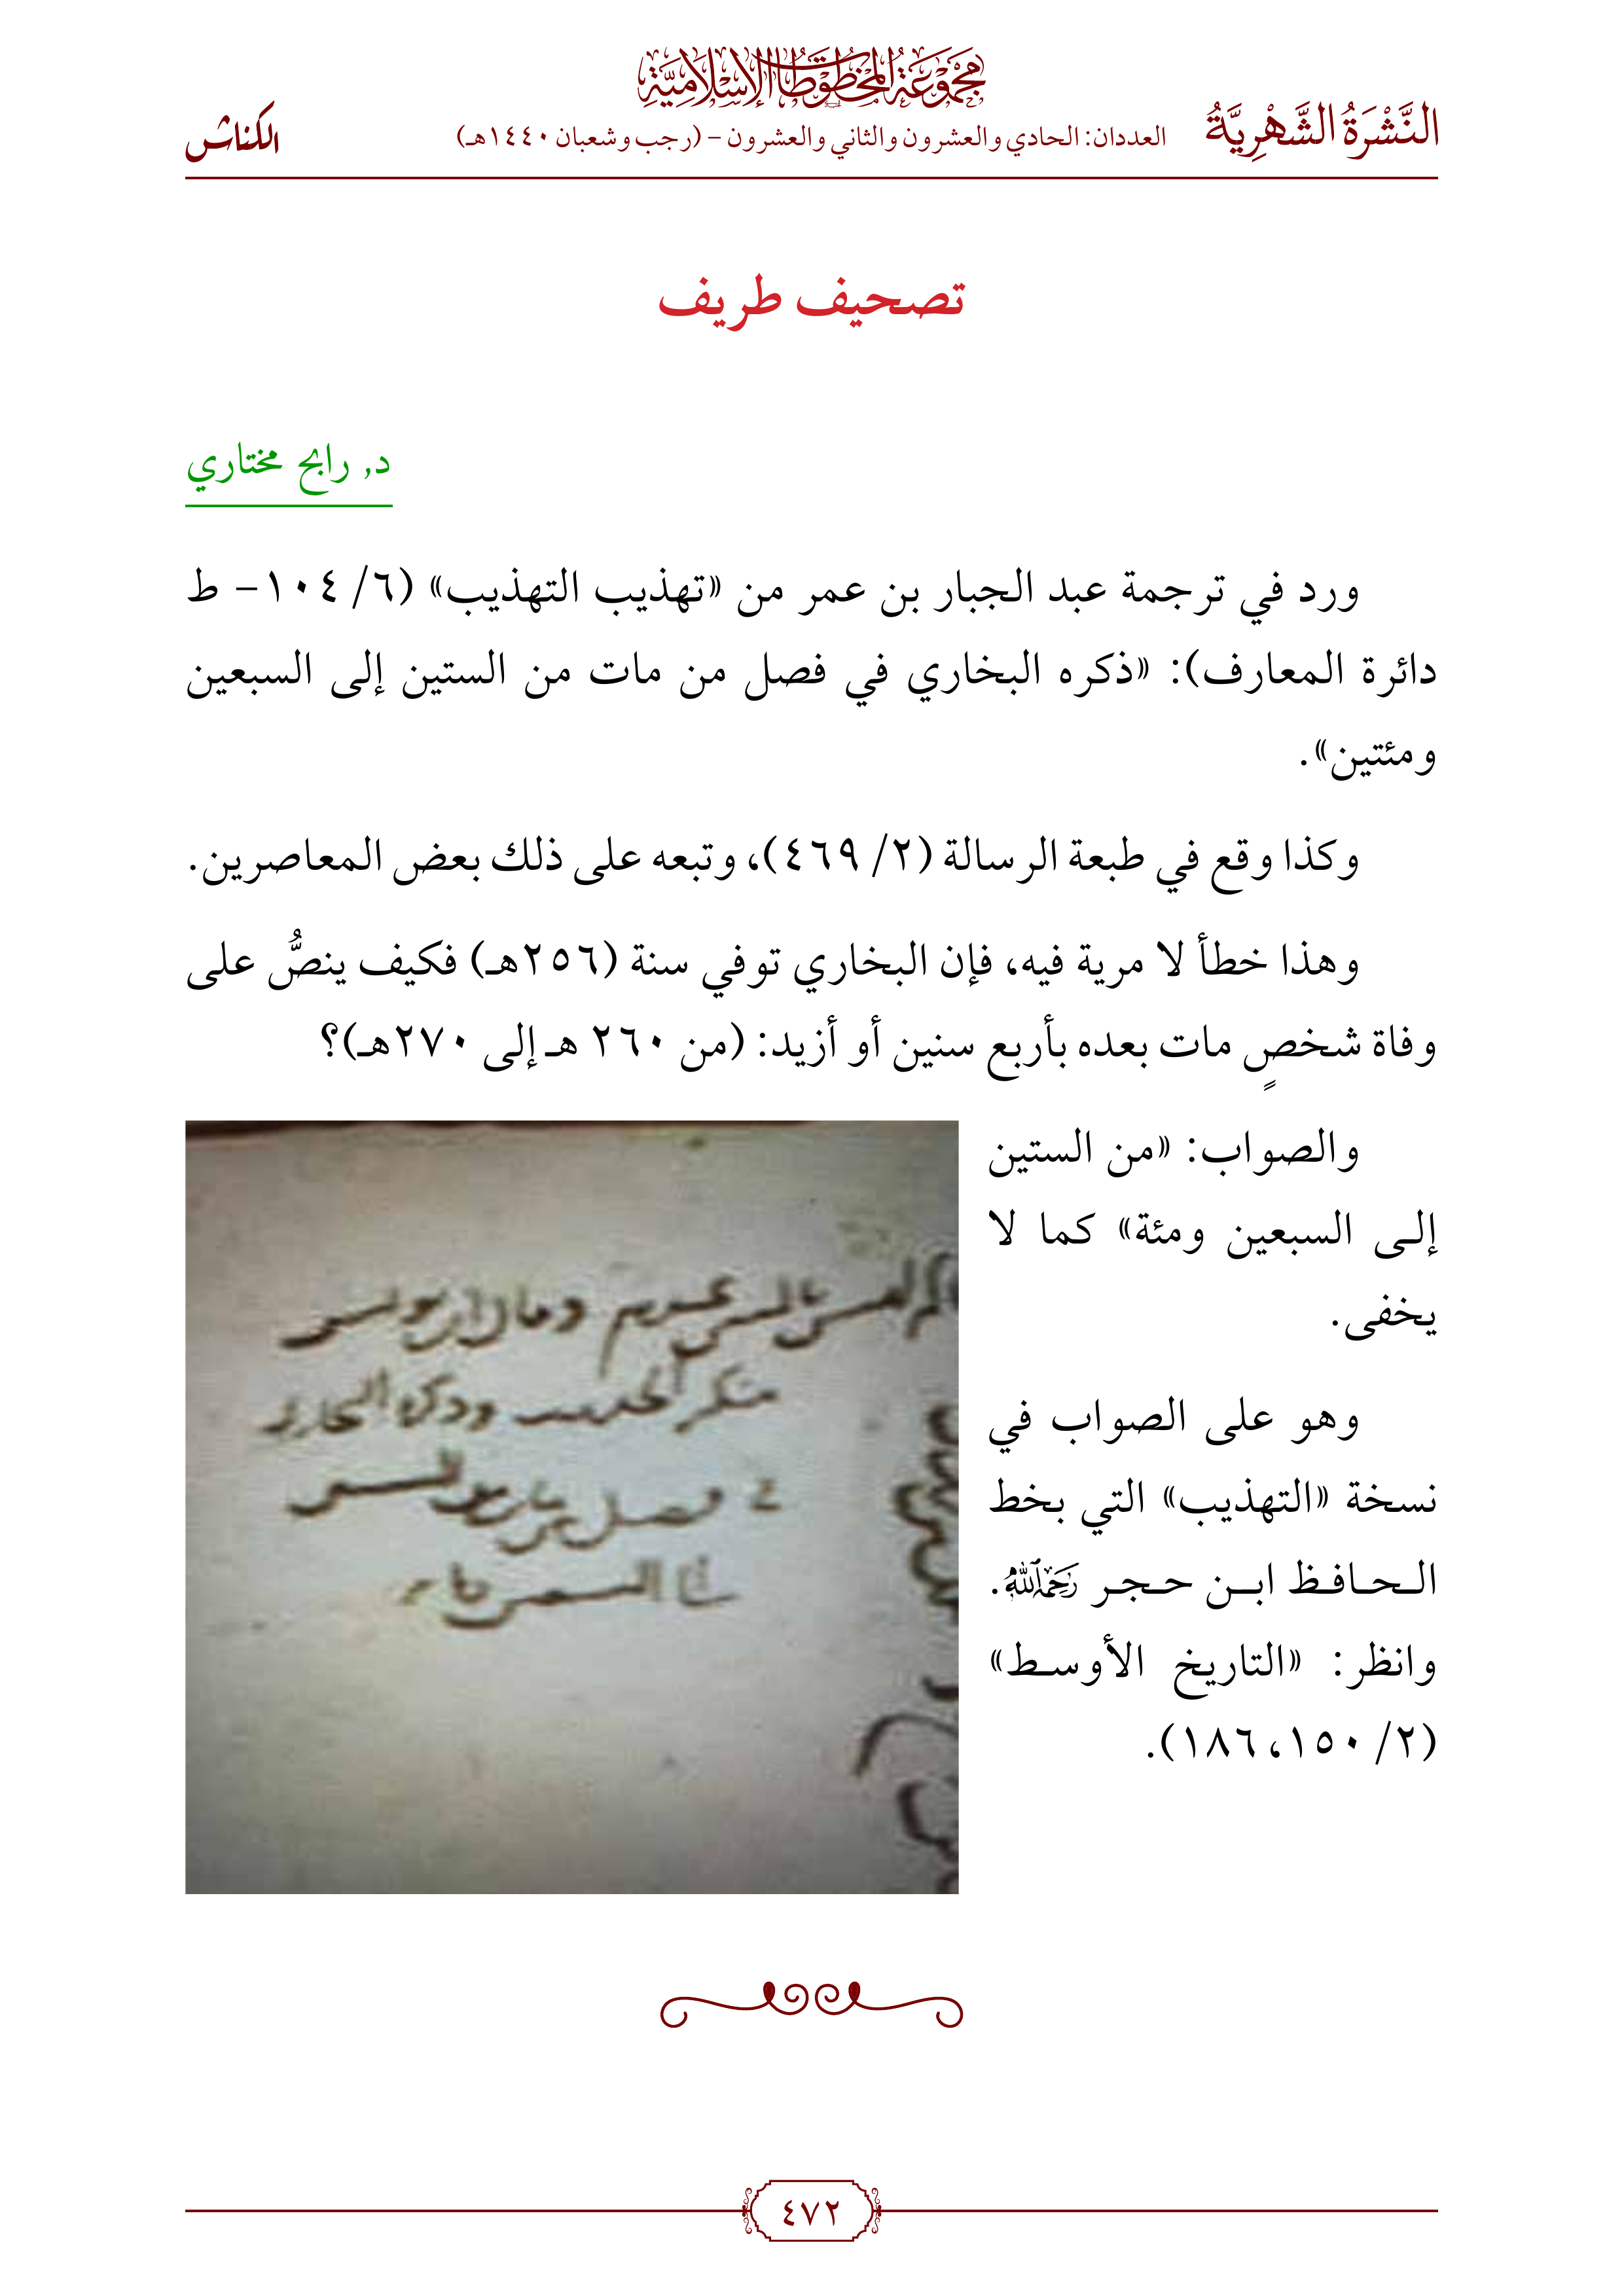 مجموعة المخطوطات الإسلامية
النَّشْرَةُ الشَّهْرِيَّةُ
العددان: الحادي والعشرون والثاني والعشرون – (رجب وشعبان ١٤٤٠هـ)
الكناش
تصحيف طريف
د, رابح مختاري
ورد في ترجمة عبد الجبار بن عمر من «تهذيب التهذيب» (٦/ ١٠٤- ط
دائرة المعارف): «ذكره البخاري في فصل من مات من الستين إلى السبعين
ومئتين».
وكذا وقع في طبعة الرسالة (٢/ ٤٦٩)، وتبعه على ذلك بعض المعاصرين.
وهذا خطأ لا مرية فيه، فإن البخاري توفي سنة (٢٥٦هـ) فكيف ينصُّ على
وفاة شخصٍ مات بعده بأربع سنين أو أزيد: (من ٢٦٠ هـ إلى ٢٧٠هـ)؟
والصواب: «من الستين
إلى السبعين ومئة» كما لا
يخفى.
وهو على الصواب في
نسخة «التهذيب» التي بخط
الحافظ ابن حجر رحمه الله.
وانظر: «التاريخ الأوسط»
(٢/ ١٥٠، ١٨٦).
منكر الحديث وذكره البخاري
في فصل من مات من الستين
إلى السبعين ومايه
٤٧٢